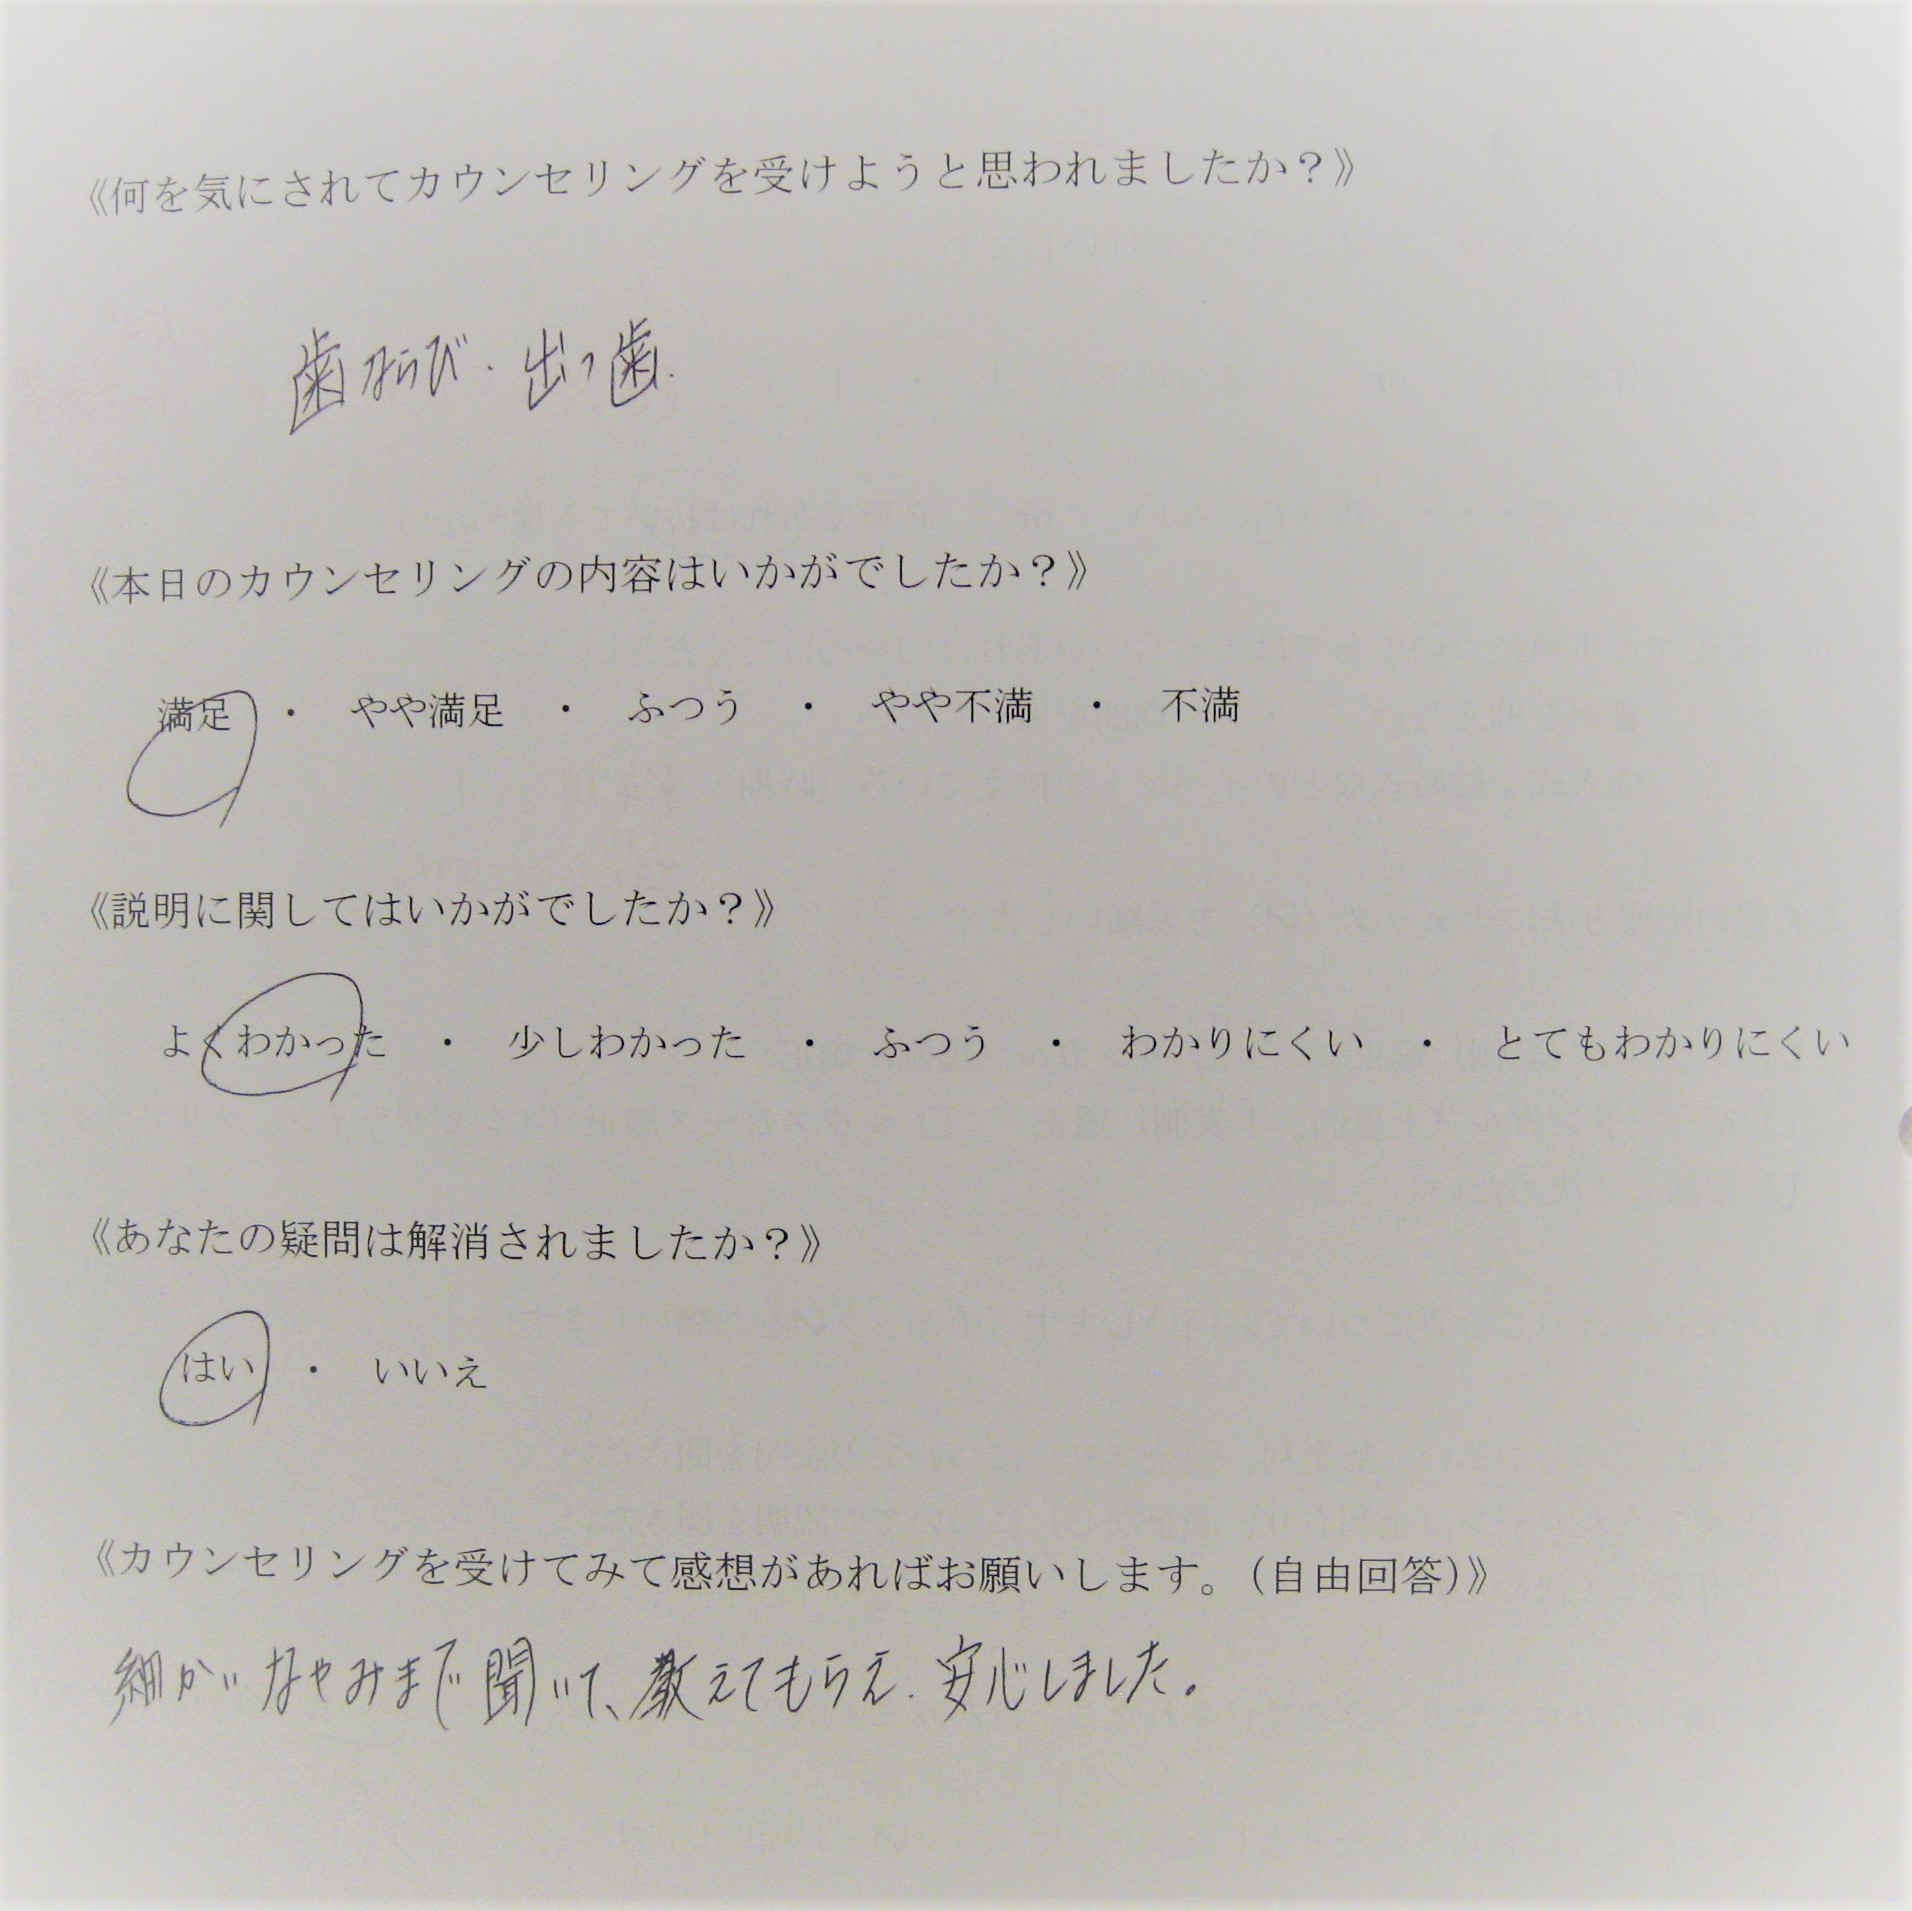 《何を気にされてカウンセリングを受けようと思われましたか？》
歯ならび・出っ歯.
《本日のカウンセリングの内容はいかがでしたか？》
満足 ・ やや満足 ・ ふつう ・ やや不満 ・ 不満
《説明に関してはいかがでしたか？》
よくわかった ・ 少しわかった ・ ふつう ・ わかりにくい ・ とてもわかりにくい
《あなたの疑問は解消されましたか？》
はい ・ いいえ
《カウンセリングを受けてみて感想があればお願いします。（自由回答）》
細かいなやみまで聞いて、教えてもらえ、安心しました。